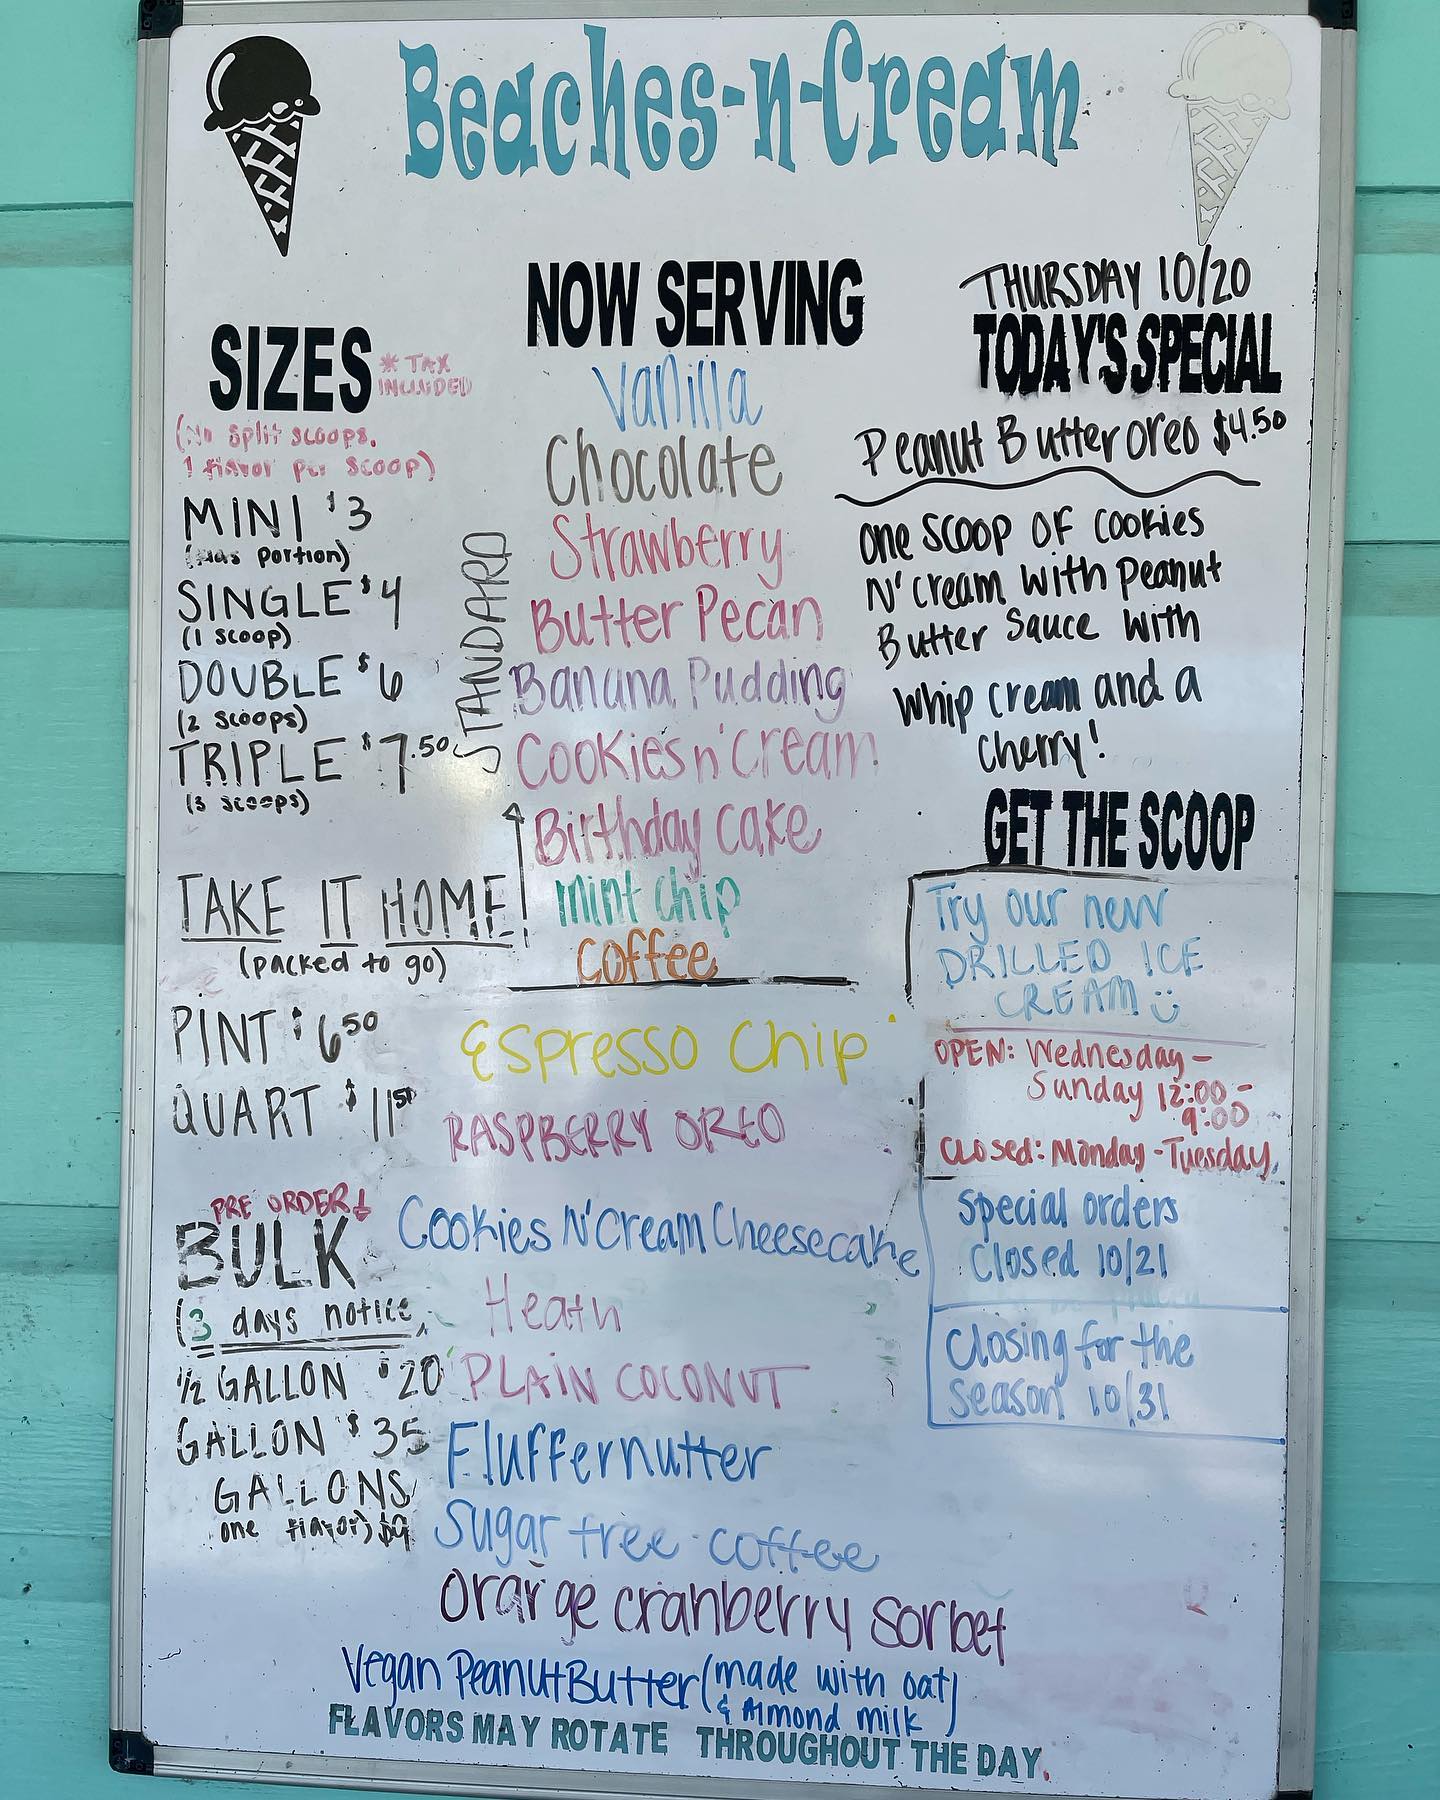 Beaches-n-Cream
SIZES
* TAX
INCLUDED
(No split scoops.
1 flavor per scoop)
MINI $3
(kids portion)
SINGLE $4
(1 scoop)
DOUBLE $6
(2 scoops)
TRIPLE $7.50
(3 scoops)
TAKE IT HOME
(packed to go)
PINT $6 50
QUART $11 50
PRE ORDER
BULK
(3 days notice)
1/2 GALLON $20
GALLON $35
GALLONS
one flavor)
NOW SERVING
STANDARD
Vanilla
Chocolate
Strawberry
Butter Pecan
Banana Pudding
Cookies n' Cream
Birthday cake
mint chip
coffee
Espresso Chip
RASPBERRY OREO
Cookies N' Cream Cheesecake
Heath
PLAIN COCONUT
Fluffernutter
Sugar free coffee
orange cranberry sorbet
Vegan Peanut Butter (made with oat
& Almond milk)
FLAVORS MAY ROTATE THROUGHOUT THE DAY.
THURSDAY 10/20
TODAY'S SPECIAL
Peanut Butter oreo $4.50
one scoop of cookies
N' cream with peanut
Butter sauce with
whip cream and a
cherry!
GET THE SCOOP
Try our new
DRILLED ICE
CREAM
OPEN: Wednesday -
Sunday 12:00 -
9:00
CLOSED: Monday - Tuesday
special orders
closed 10/21
Closing for the
season 10/31